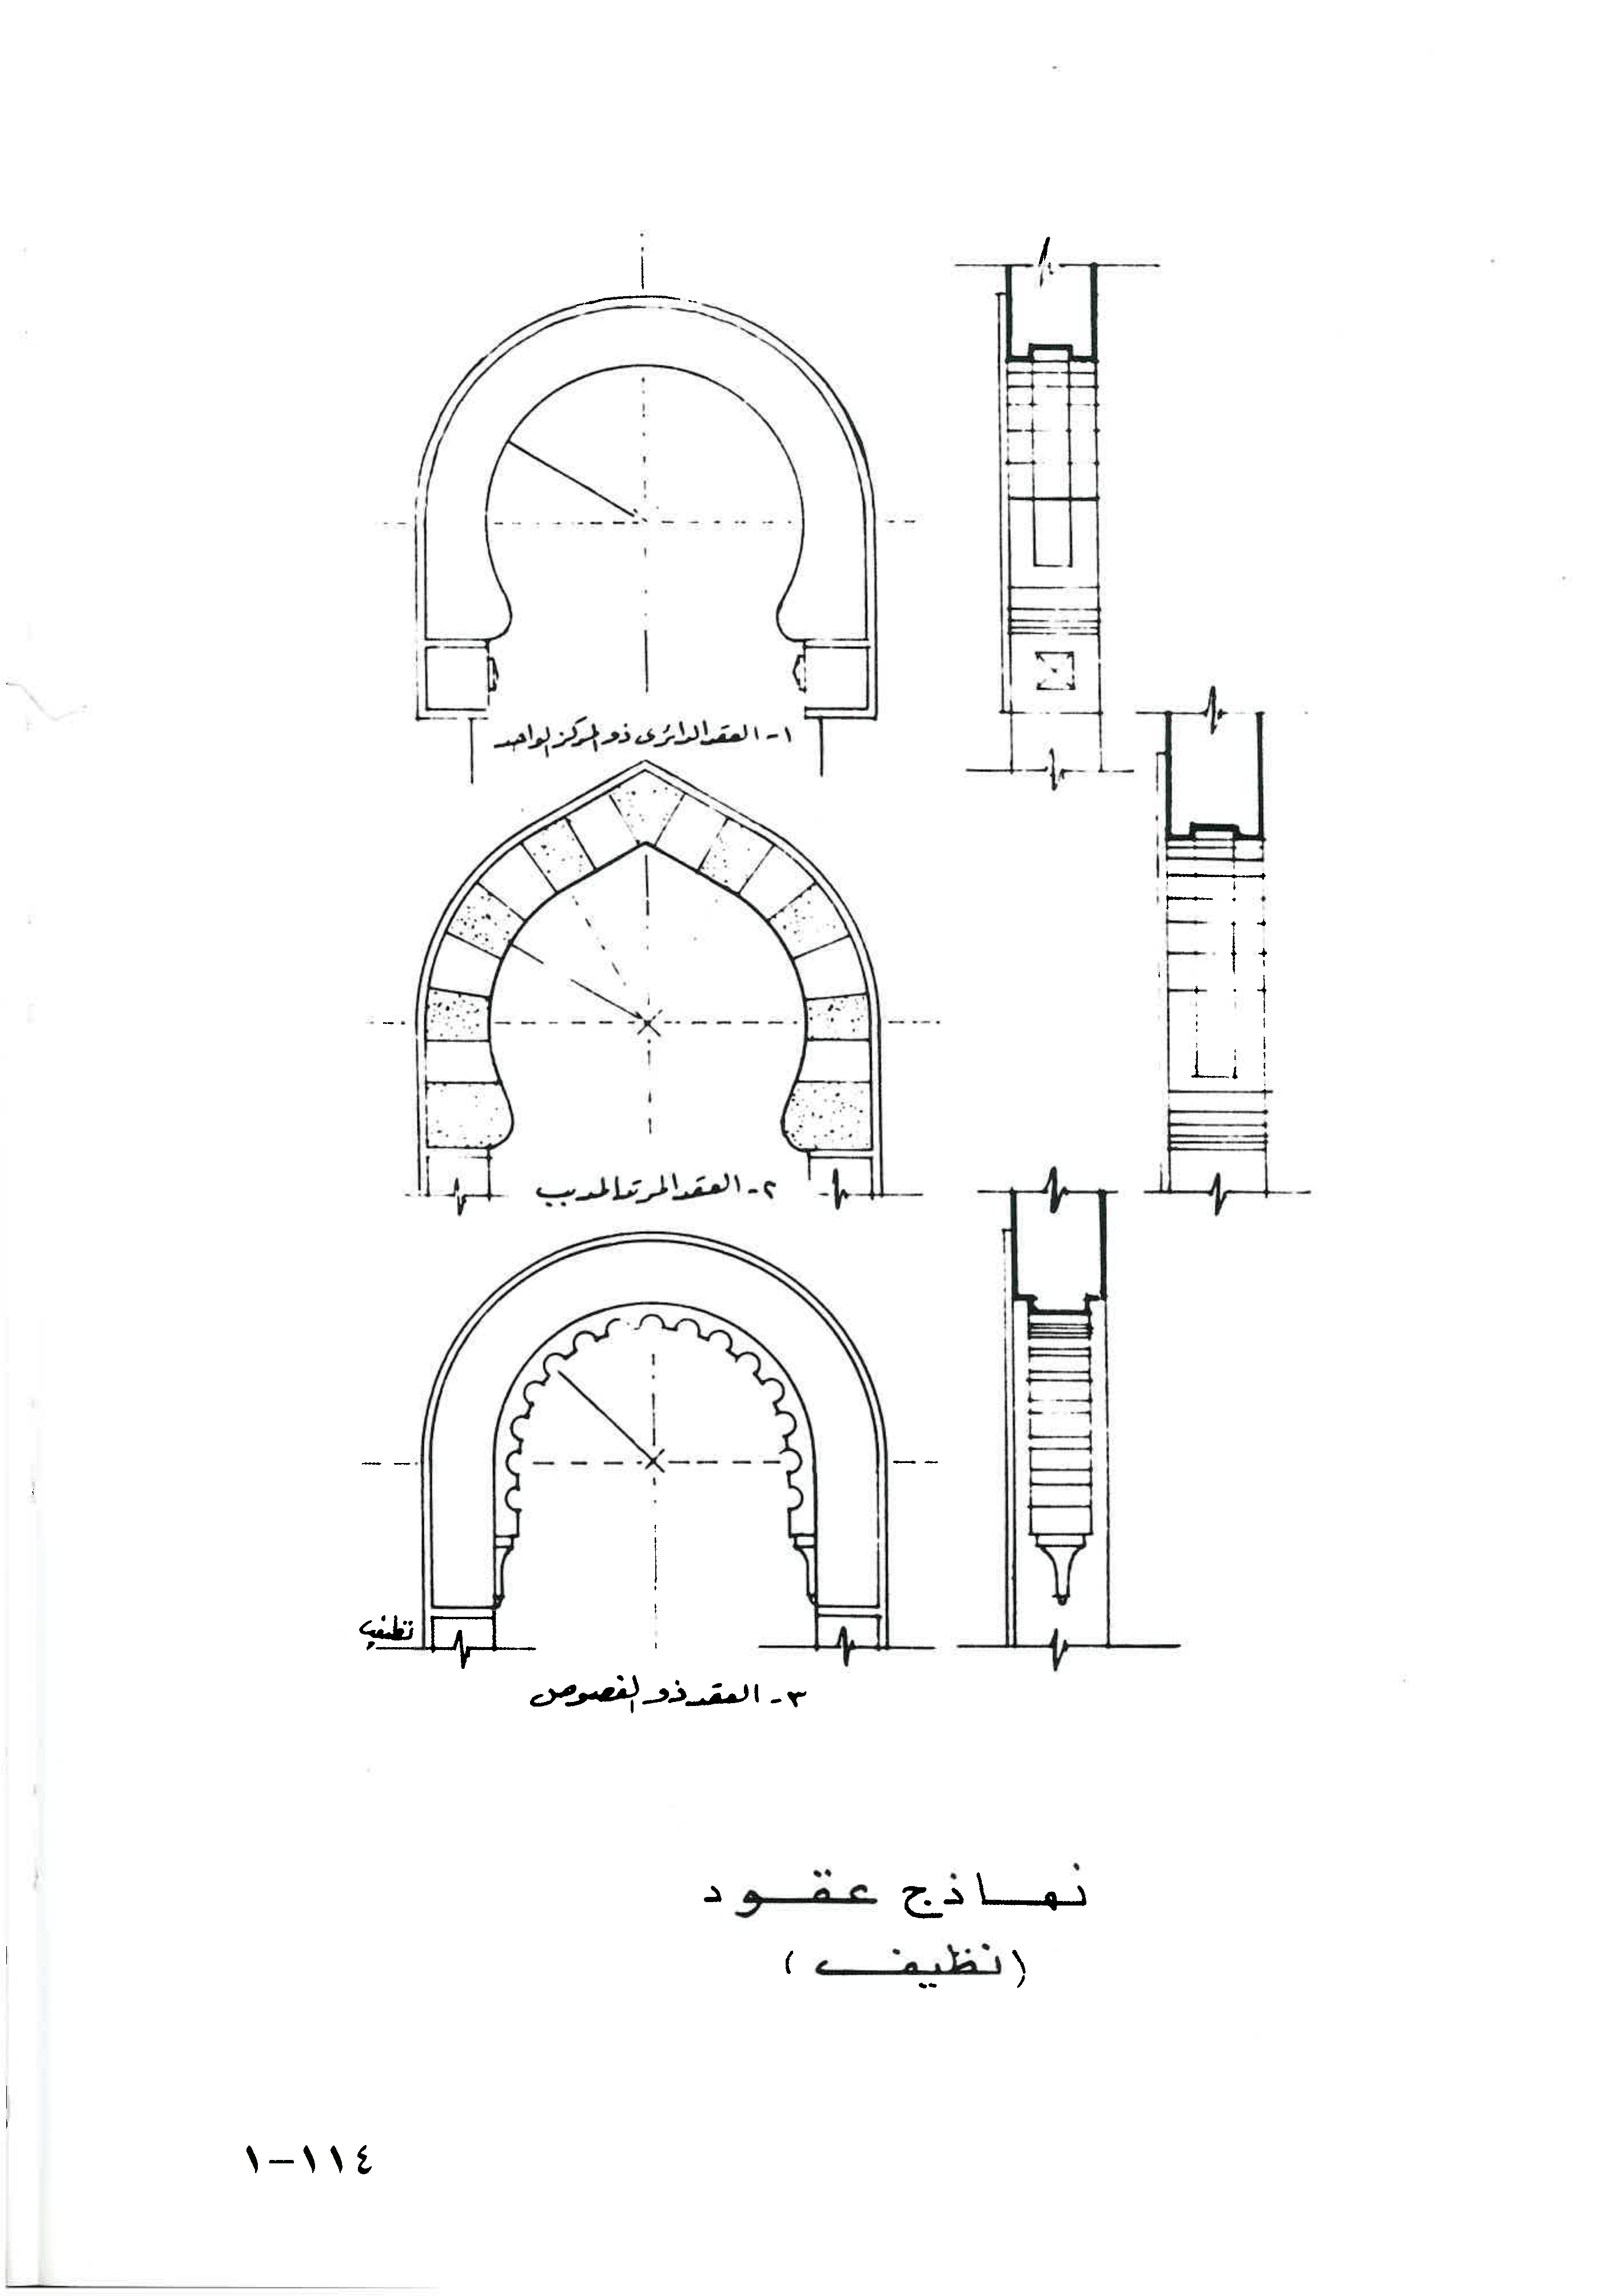 ١- العقد الدائرى ذو المركز الواحد
٢- العقد المرتد المدبب
نظيف
٣- العقد ذو الفصوص
نماذج عقود
(نظيف)
١-١١٤